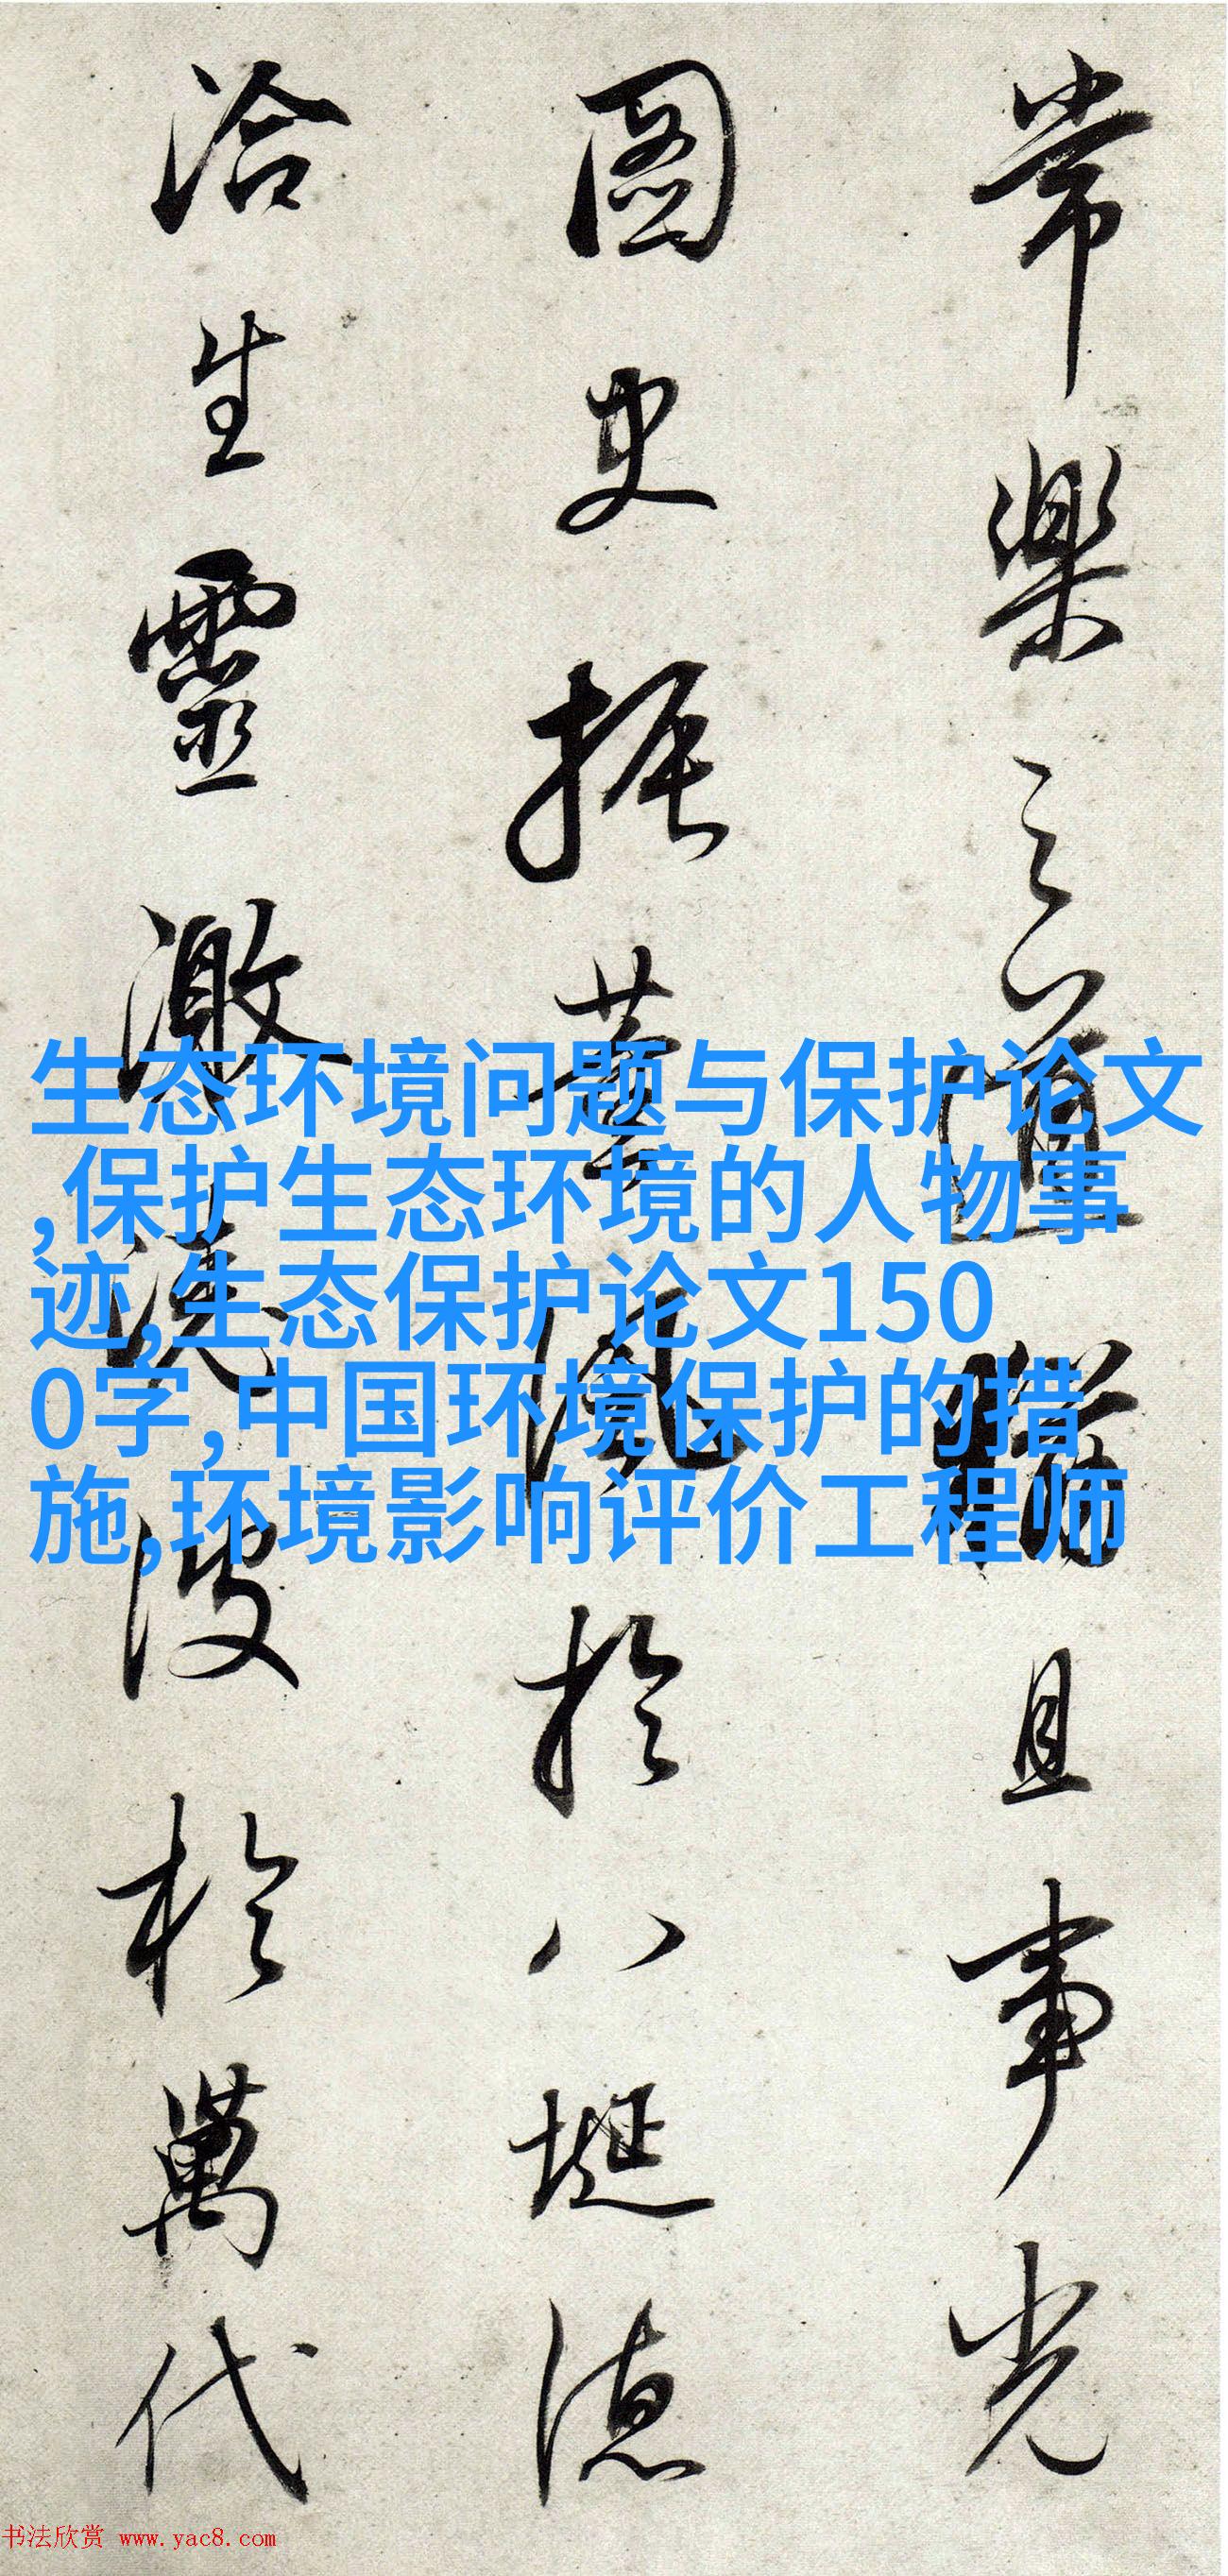 常樂之道且事光
圖史振薰風於八埏德
洽生靈激波於萬代
生态环境问题与保护论文
,保护生态环境的人物事
迹,生态保护论文150
0字,中国环境保护的措
施,环境影响评价工程师
书法欣赏 www.yac8.com